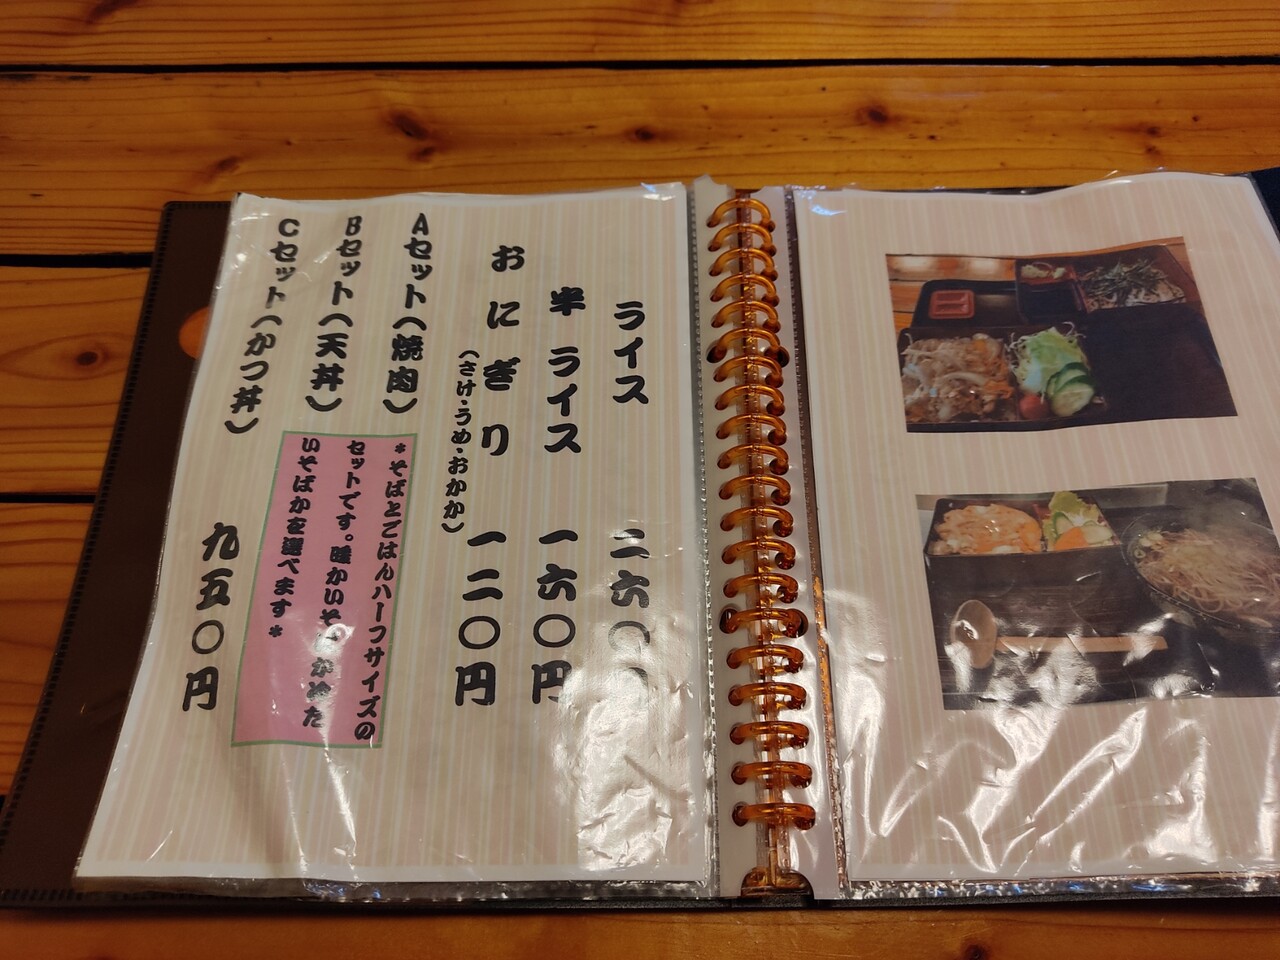 ライス 二六〇
半ライス 一六〇円
おにぎり 一二〇円
(さけ・うめ・おかか)
Aセット(焼肉)
Bセット(天丼)
Cセット(かつ丼) 九五〇円
*そばとごはんハーフサイズの
セットです。暖かいそばか冷た
いそばかを選べます*